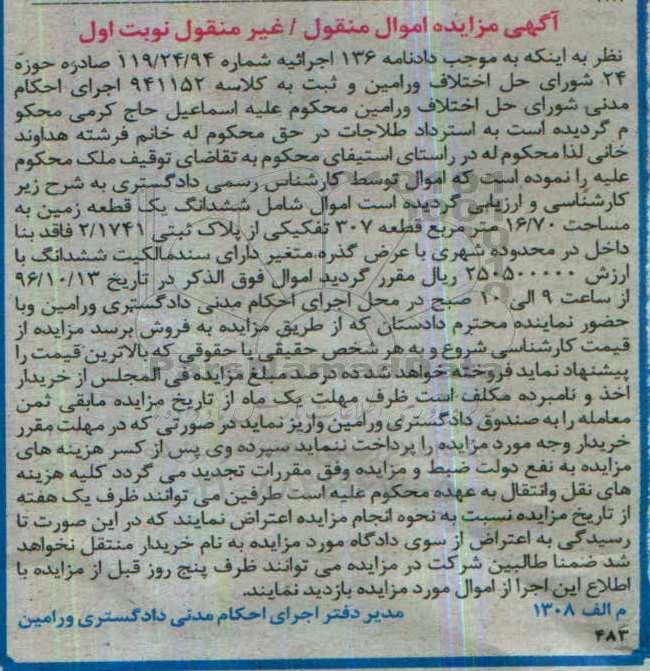 آگهی مزایده اموال منقول / غیر منقول نوبت اول
نظر به اینکه به موجب دادنامه ۱۳۶ اجرائیه شماره ۱۱۹/۲۴/۹۴ صادره حوزه
۲۴ شورای حل اختلاف ورامین و ثبت به کلاسه ۹۴۱۱۵۲ اجرای احکام
مدنی شورای حل اختلاف ورامین محکوم علیه اسماعیل حاج کرمی محکو
م گردیده است به استرداد طلاجات در حق محکوم له خانم فرشته هداوند
خانی لذا محکوم له در راستای استیفای محکوم به تقاضای توقیف ملک محکوم
علیه را نموده است که اموال توسط کارشناس رسمی دادگستری به شرح زیر
کارشناسی و ارزیابی گردیده است اموال شامل ششدانگ یک قطعه زمین به
مساحت ۱۶/۷۰ متر مربع قطعه ۳۰۷ تفکیکی از پلاک ثبتی ۲/۱۷۴۱ فاقد بنا
داخل در محدوده شهری با عرض گذره متغیر دارای سندمالکیت ششدانگ با
ارزش ۲۵۰۵۰۰۰۰۰ ریال مقرر گردید اموال فوق الذکر در تاریخ ۹۶/۱۰/۱۳
از ساعت ۹ الی ۱۰ صبح در محل اجرای احکام مدنی دادگستری ورامین وبا
حضور نماینده محترم دادستان که از طریق مزایده به فروش برسد مزایده از
قیمت کارشناسی شروع و به هر شخص حقیقی یا حقوقی که بالاترین قیمت را
پیشنهاد نماید فروخته خواهد شد ده درصد مبلغ مزایده فی المجلس از خریدار
اخذ و نامبرده مکلف است ظرف مهلت یک ماه از تاریخ مزایده مابقی ثمن
معامله را به صندوق دادگستری ورامین واریز نماید در صورتی که در مهلت مقرر
خریدار وجه مورد مزایده را پرداخت ننماید سپرده وی پس از کسر هزینه های
مزایده به نفع دولت ضبط و مزایده وفق مقررات تجدید می گردد کلیه هزینه
های نقل وانتقال به عهده محکوم علیه است طرفین می توانند ظرف یک هفته
از تاریخ مزایده نسبت به نحوه انجام مزایده اعتراض نمایند که در این صورت تا
رسیدگی به اعتراض از سوی دادگاه مورد مزایده به نام خریدار منتقل نخواهد
شد ضمنا طالبین شرکت در مزایده می توانند ظرف پنج روز قبل از مزایده با
اطلاع این اجرا از اموال مورد مزایده بازدید نمایند.
م الف ۱۳۰۸ مدیر دفتر اجرای احکام مدنی دادگستری ورامین
۴۸۳